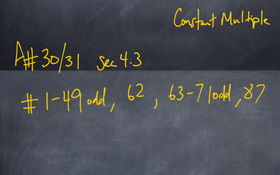 Constant Multiple
A# 30/31 sec 4.3
# 1-49 odd, 62, 63-71 odd, 87